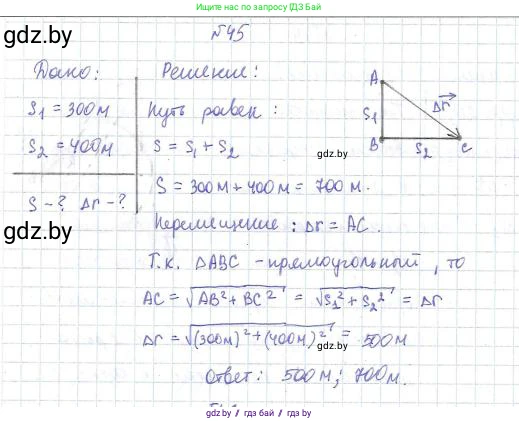 gdz.by
присвоено 1 Бай
по запросу ГДЗ Бай
№45
Дано:
S₁ = 300м
S₂ = 400м
S - ? Δr - ?
Решение:
Путь равен:
S = S₁ + S₂
S = 300м + 400м = 700м.
Перемещение: Δr = AC.
Т.к. ΔABC - прямоугольный, то
AC = √(AB² + BC²) = √(S₁² + S₂²) = Δr
Δr = √((300м)² + (400м)²) = 500м
Ответ: 500м; 700м.
A
Δr
S₁
B
S₂
C
gdz.by
gdz.by
gdz.by
gdz.by / гдз бай / гдз.бай